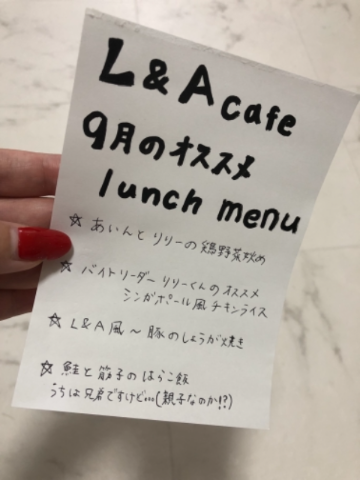 L&A cafe
9月のオススメ
lunch menu
☆ あいんと リリーの 鶏野菜炒め
☆ バイトリーダー リリーくんの オススメ
シンガポール風 チキンライス
☆ L&A風 〜 豚のしょうが焼き
☆ 鮭と筋子の はらこ飯
うちは兄弟ですけど…(親子なのか!?)